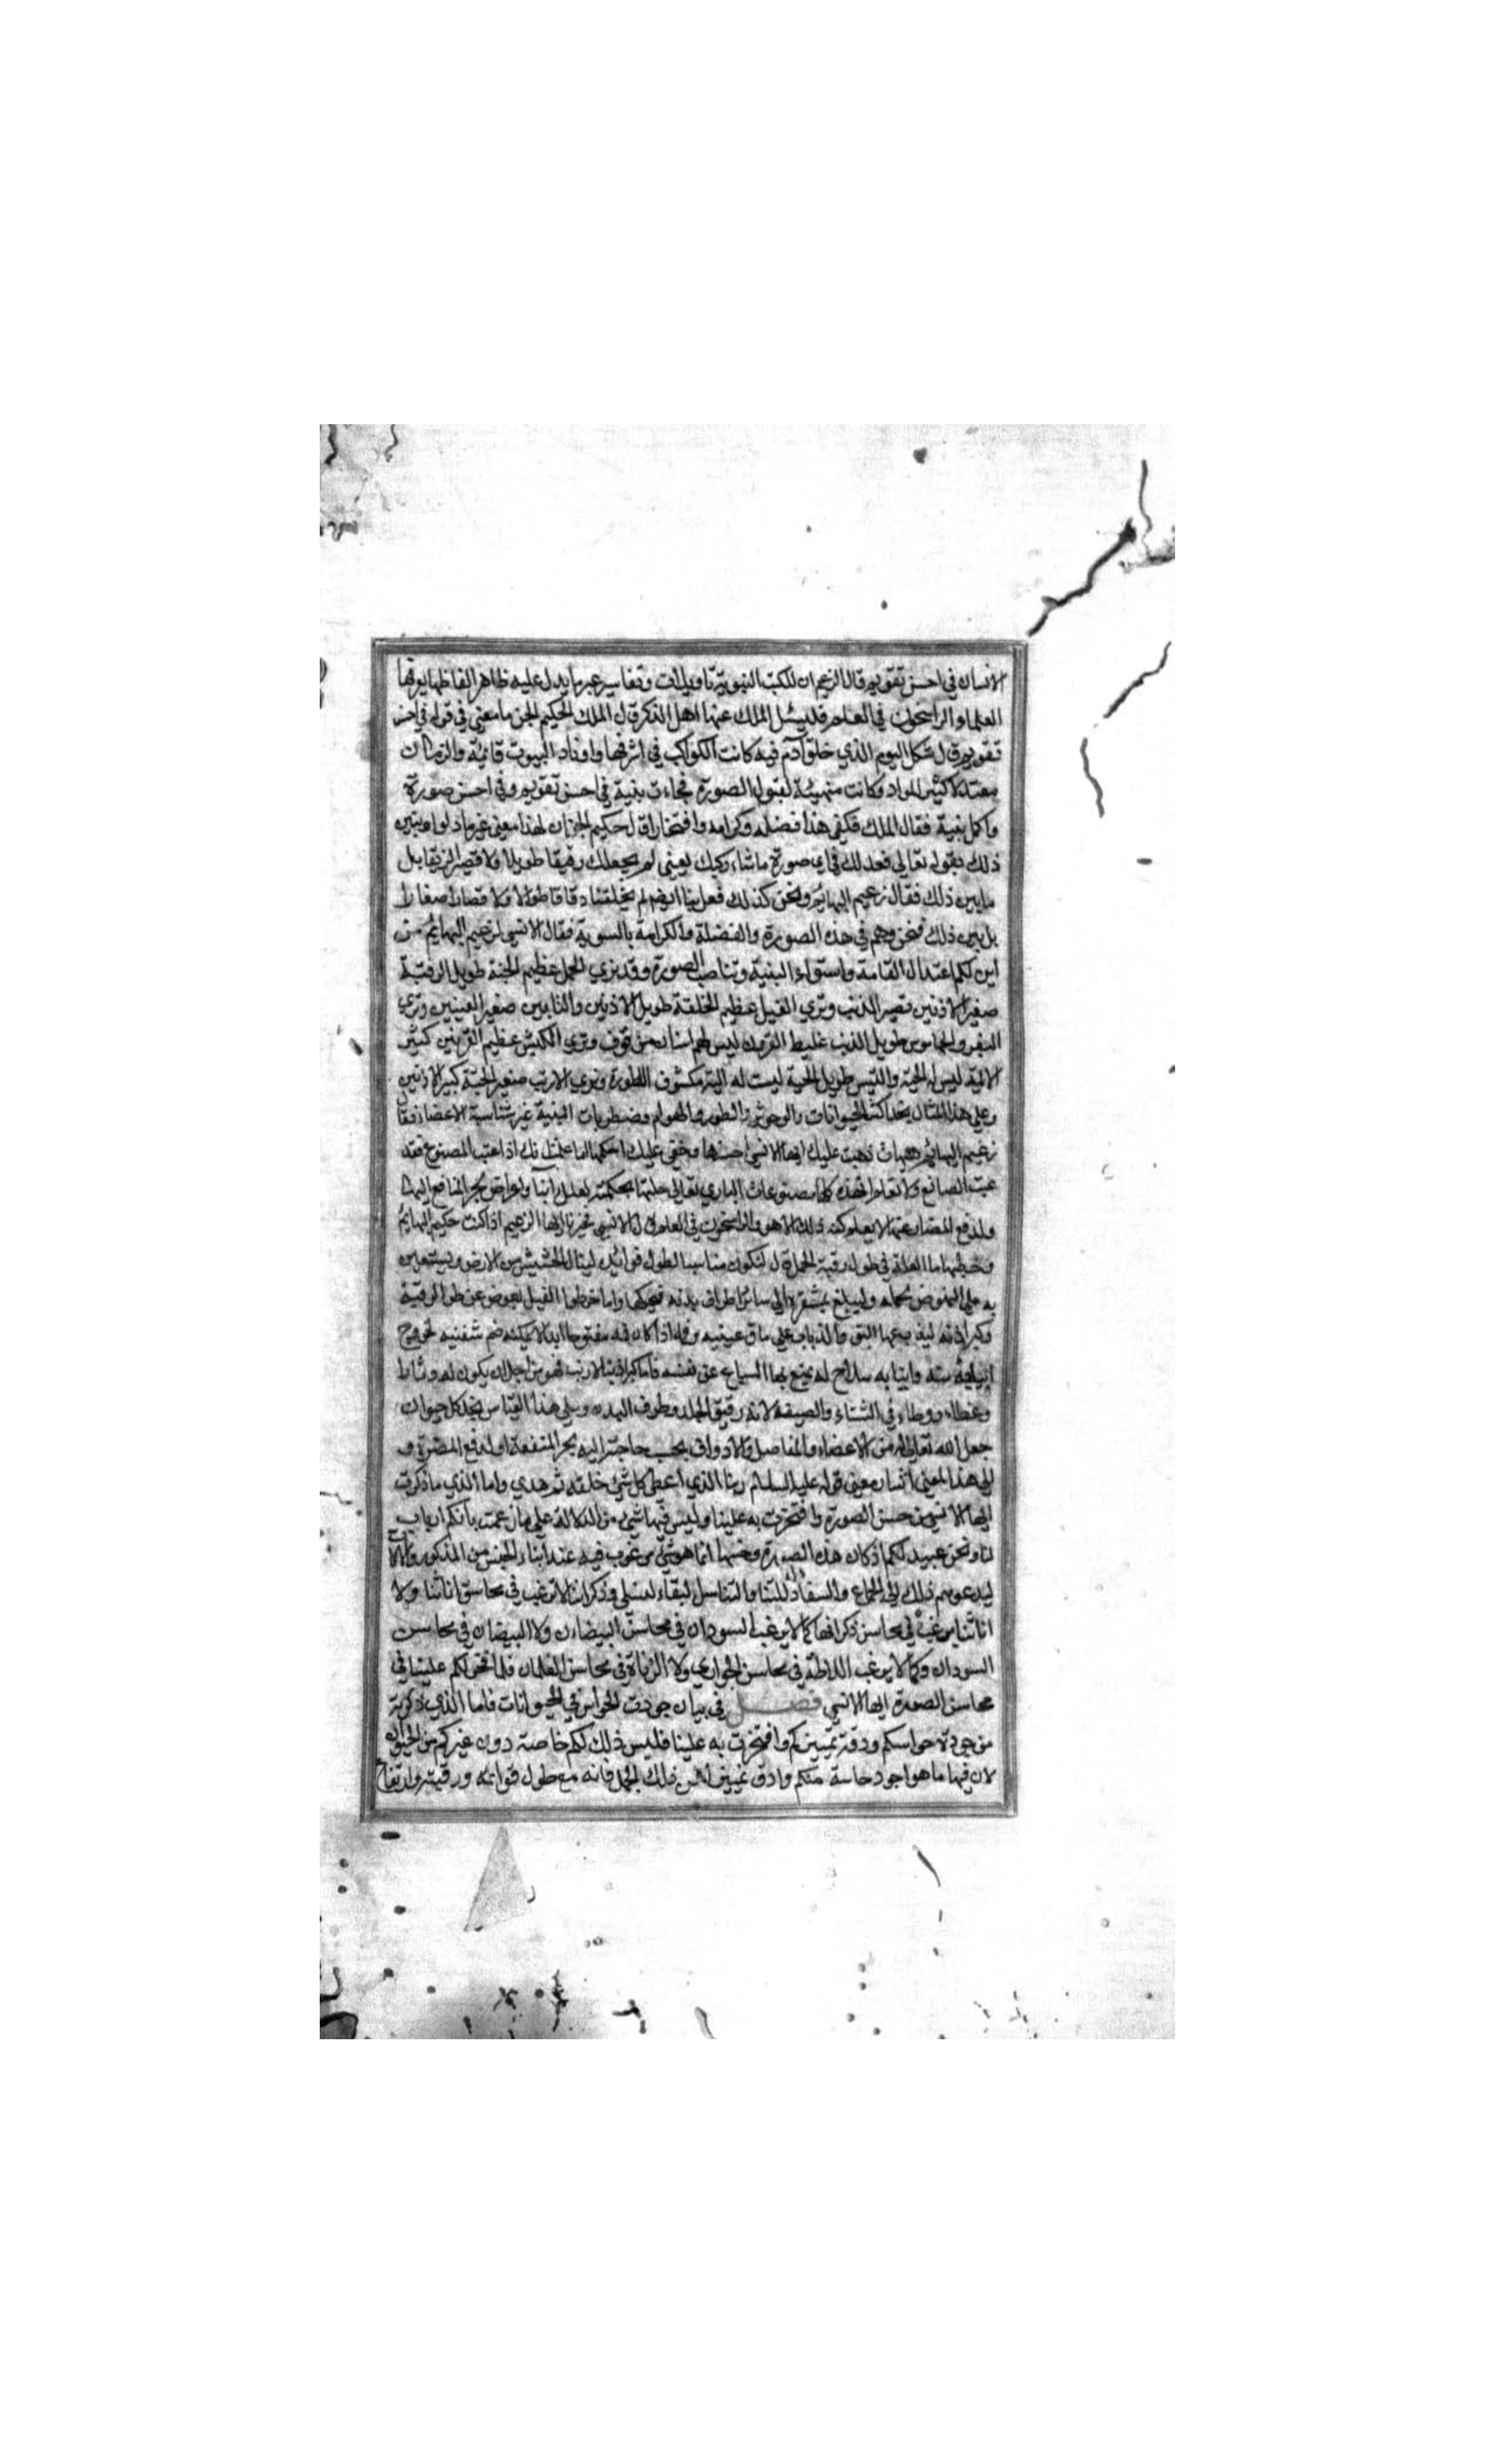 الانسان في احسن تقويم قال الزعيم ان للكتب النبوية تاويلات وتفاسير غير ما يدل عليه ظاهر الفاظها يعرفها
العلماء الراسخون في العلم فليسئل الملك عنها اهل الذكر قال الملك لحكيم الجن ما معنى في قوله في احسن
تقويم قال شكل اليوم الذي خلق آدم فيه كانت الكواكب في اشرفها واوتاد البيوت قائمة والزمان
معتدلا كثير المواد وكانت متهيئة لقبول الصورة فجاءت بنية في احسن تقويم وفي احسن صورة
واكمل بنية فقال الملك فكفى هذا فضله وكرامه وافتخارا قال حكيم الجن ان لهذا معنى غير ما
ذلك بقوله تعالى فعدلك في اي صورة ما شاء ركبك يعني لم يجعلك رقيقا طويلا ولا قصيرا بل
ما بين ذلك فقال زعيم البهائم ونحن كذلك فعل بنا ايضا لم يخلقنا دقاقا طوالا ولا قصارا صغارا
بل بين ذلك فنحن وهم في هذه الصورة والفضلة والكرامة بالسوية فقال الانسي لزعيم البهائم من
اين لكم اعتدال القامة واستواء البنية وتناصب الصورة وقد نري الجمل عظيم الجثة طويل الرقبة
صغير الاذنين قصير الذنب وتري الفيل عظيم الخلقة طويل الاذنين والنابين صغير العينين وتري
البقر والجاموس طويل الذنب غليظ القرون ليس لهم اسنان من فوق وتري الكبش عظيم القرنين كثير
الالية ليس له لحية والتيس طويل اللحية ليست له الية مكشوف العورة وتري الارنب صغير الجثة كبير الاذنين
وعلي هذا المثال نجد اكثر الحيوانات والوحوش والطيور والهوام مضطربات البنية غير متناسبة الاعضاء فقال
زعيم البهائم هيهات ذهب عليك ايها الانسي احسنها وخفي عليك احكمها اما علمت انك اذا عبت المصنوع فقد
عبت الصانع ولا تعلم ان هذه كلها مصنوعات الباري تعالى خلقها بحكمته لعلل واسباب واغراض لجر المنافع اليها
ولدفع المضار عنها لا يعلم كنه ذلك الا هو والراسخون في العلم قال الانسي فخبرنا ايها الزعيم اذا كنت حكيم البهائم
وخطيبها ما العلة في طول رقبة الجمل قال لتكون مناسبا لطول قوائمه لينال الحشيش من الارض ويستعين
به علي النهوض بحمله وليبلغ بمشفره الي سائر اطراف بدنه فيحكها واما خرطوم الفيل فعوض عن طول الرقبة
وكبر اذنه ليذب بهما البق والذباب علي ماق عينيه وفمه اذا كان فمه مفتوحا ابدا لا يمكنه ضم شفتيه لخروج
انيابه منه وانيابه سلاح له يمنع بها السباع عن نفسه فاما كبر اذن الارنب فهو من اجل ان يكون له دثارا
وغطاء ووطاء في الشتاء والصيف لانه رقيق الجلد وطرف البدن وعلي هذا القياس نجد كل حيوان
جعل الله تعالي له من الاعضاء والمفاصل والادوات بحسب حاجته اليه لجر المنفعة او لدفع المضرة و
الي هذا المعني اشار معني قوله عليه السلام ربنا الذي اعطى كل شئ خلقه ثم هدي واما الذي ما ذكرت
ايها الانسي من حسن الصورة وافتخرت به علينا وليس فيها شئ من الدلالة علي ما زعمت بانكم ارباب
لنا ونحن عبيد لكم اذ كان هذه الصورة وحسنها انما هو شئ مرغوب فيه عند ابناء الجنس من الذكور والاناث
ليدعوهم ذلك الي الجماع والسفاد للنتاج والتناسل لبقاء لنسلي وذكراننا لا ترغب في محاسن اناثنا ولا
اناثنا يرغب في محاسن ذكرانها كما لا يرغب السودان في محاسن البيضان ولا البيضان في محاسن
السودان وكما لا يرغب اللاطة في محاسن الجواري ولا الزناة في محاسن الغلمان فلا فخر لكم علينا في
محاسن الصورة ايها الانسي فصل في بيان جودت الحواس في الحيوانات فاما الذي ذكرته
من جودة حواسكم ودقة تمييزكم وافتخرت به علينا فليس ذلك لكم خاصة دون غيركم من الحيوان
لان فيها ما هو اجود حاسة منكم وادق تمييزا فمن ذلك الجمل فانه مع طول قوائمه ورقبته وارتفاع